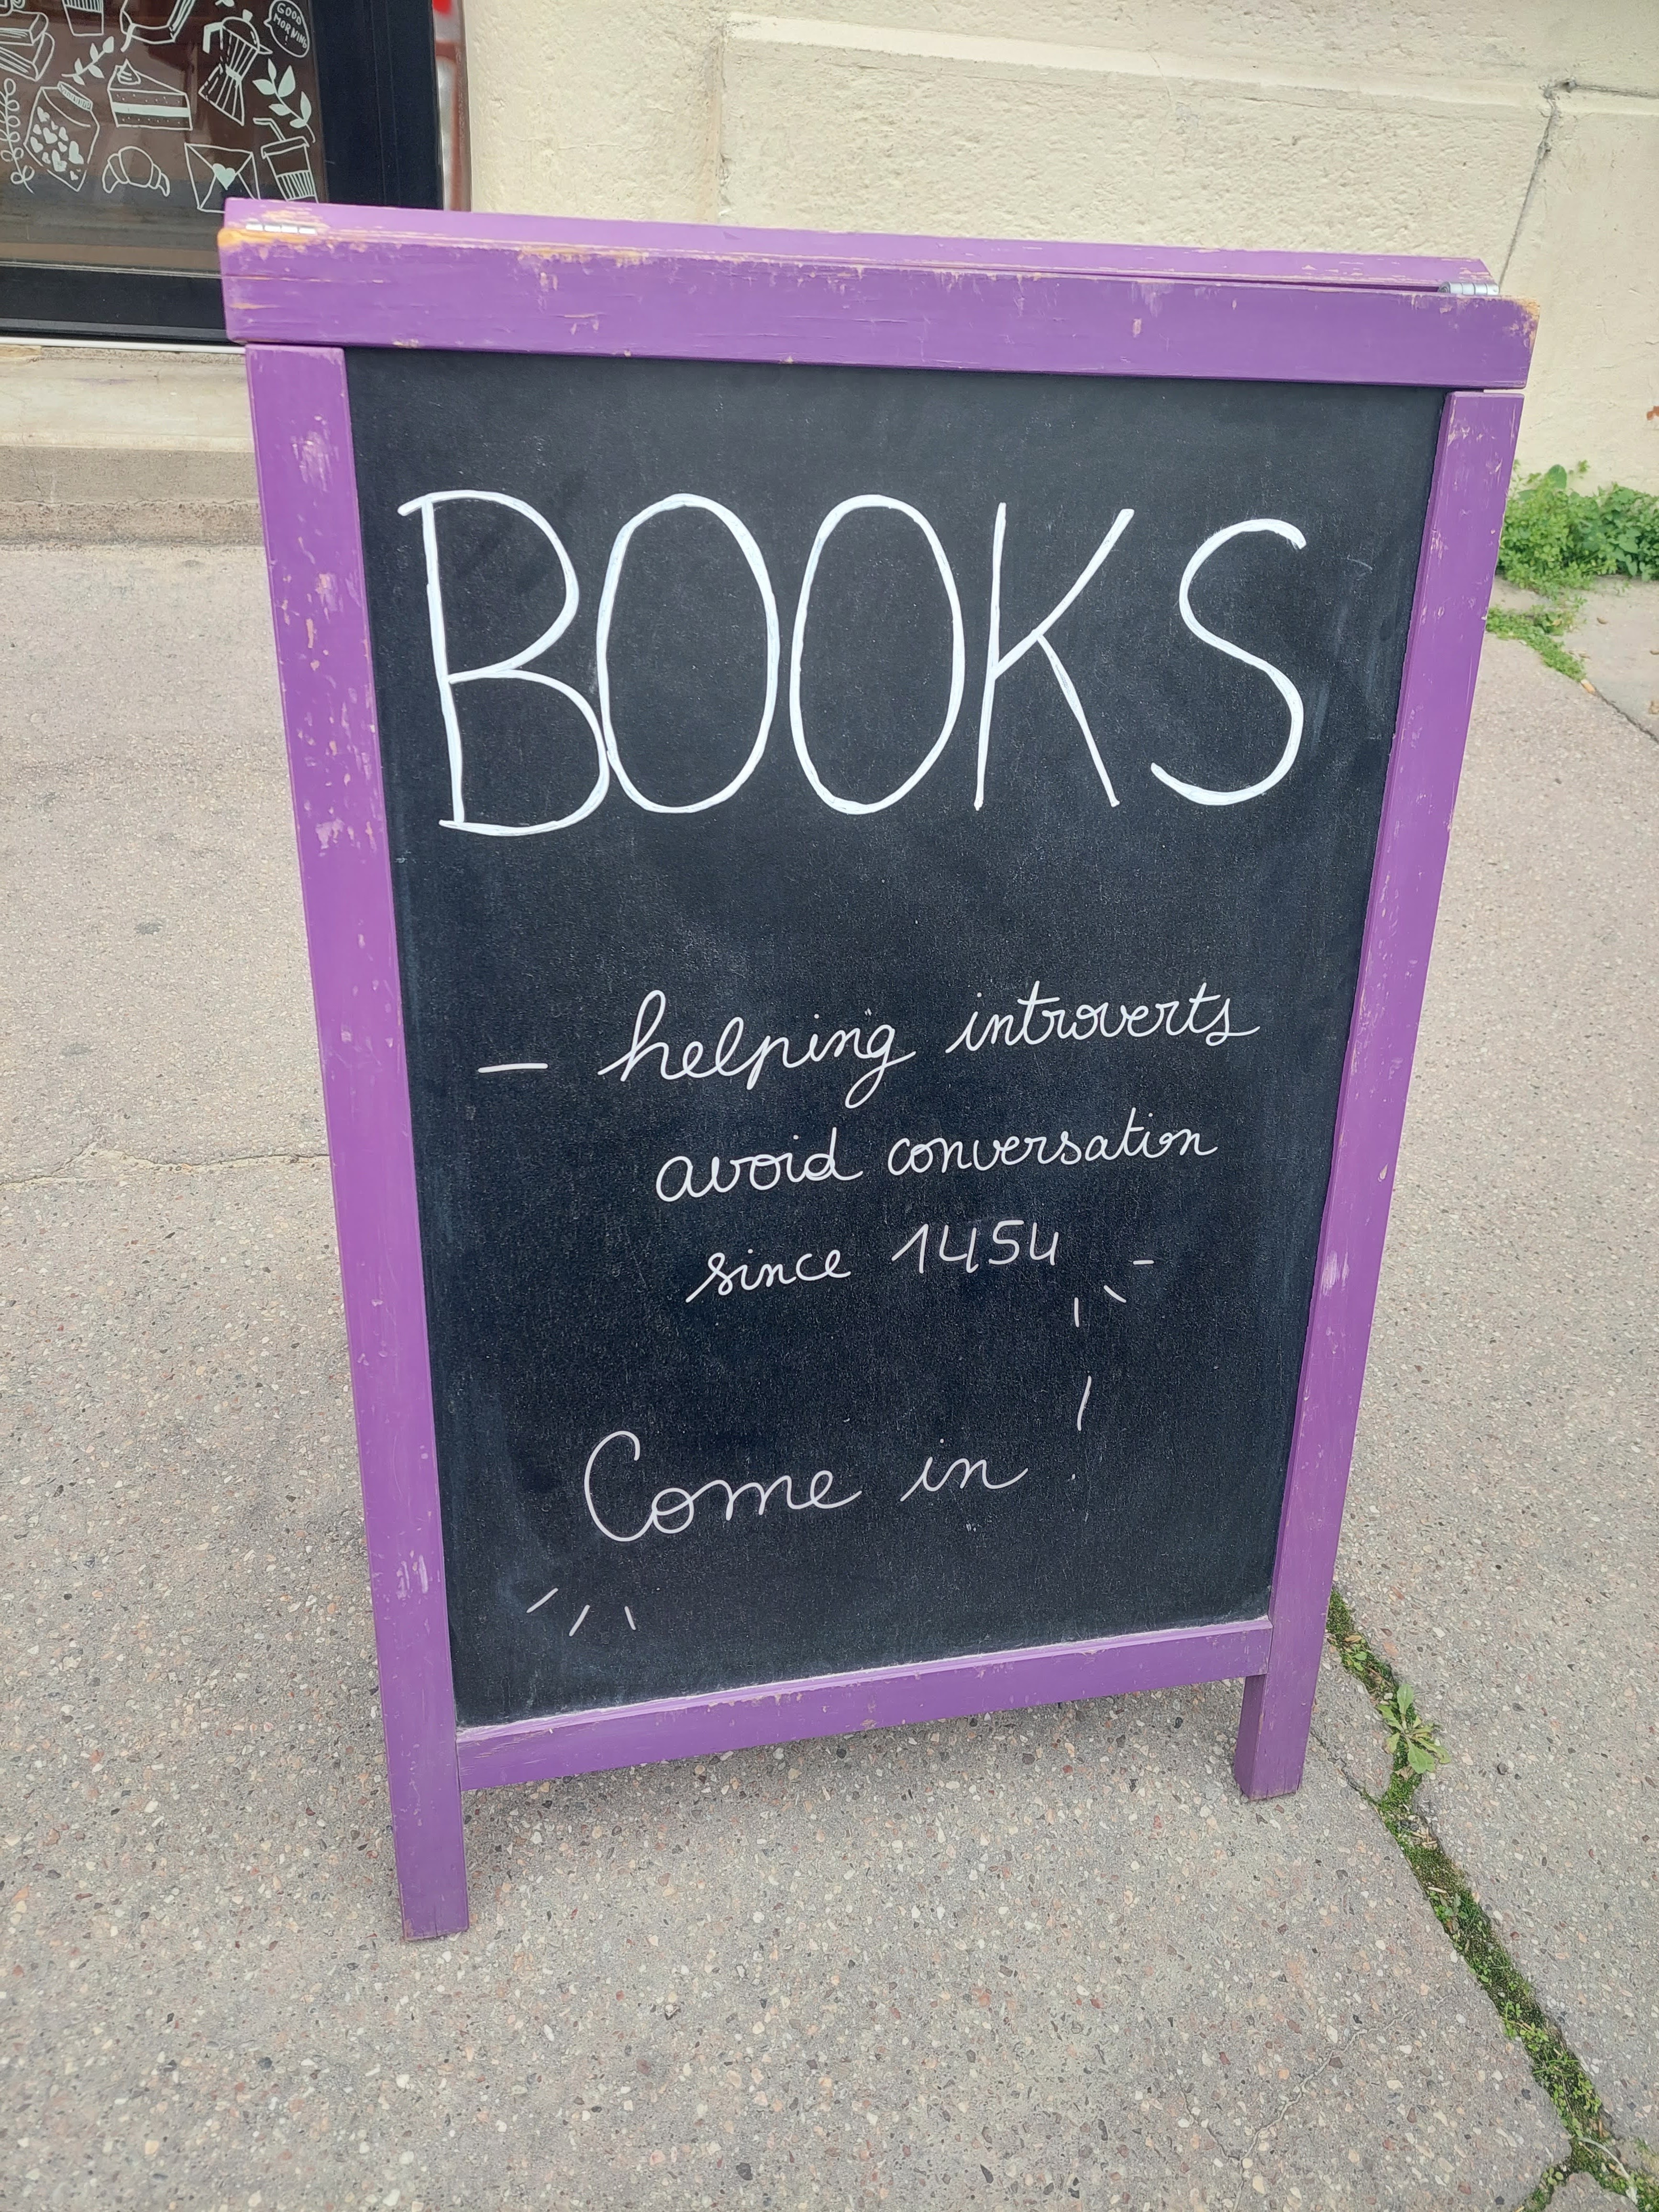 GOOD
MORNING
BOOKS
– helping introverts
avoid conversation
since 1454
Come in !